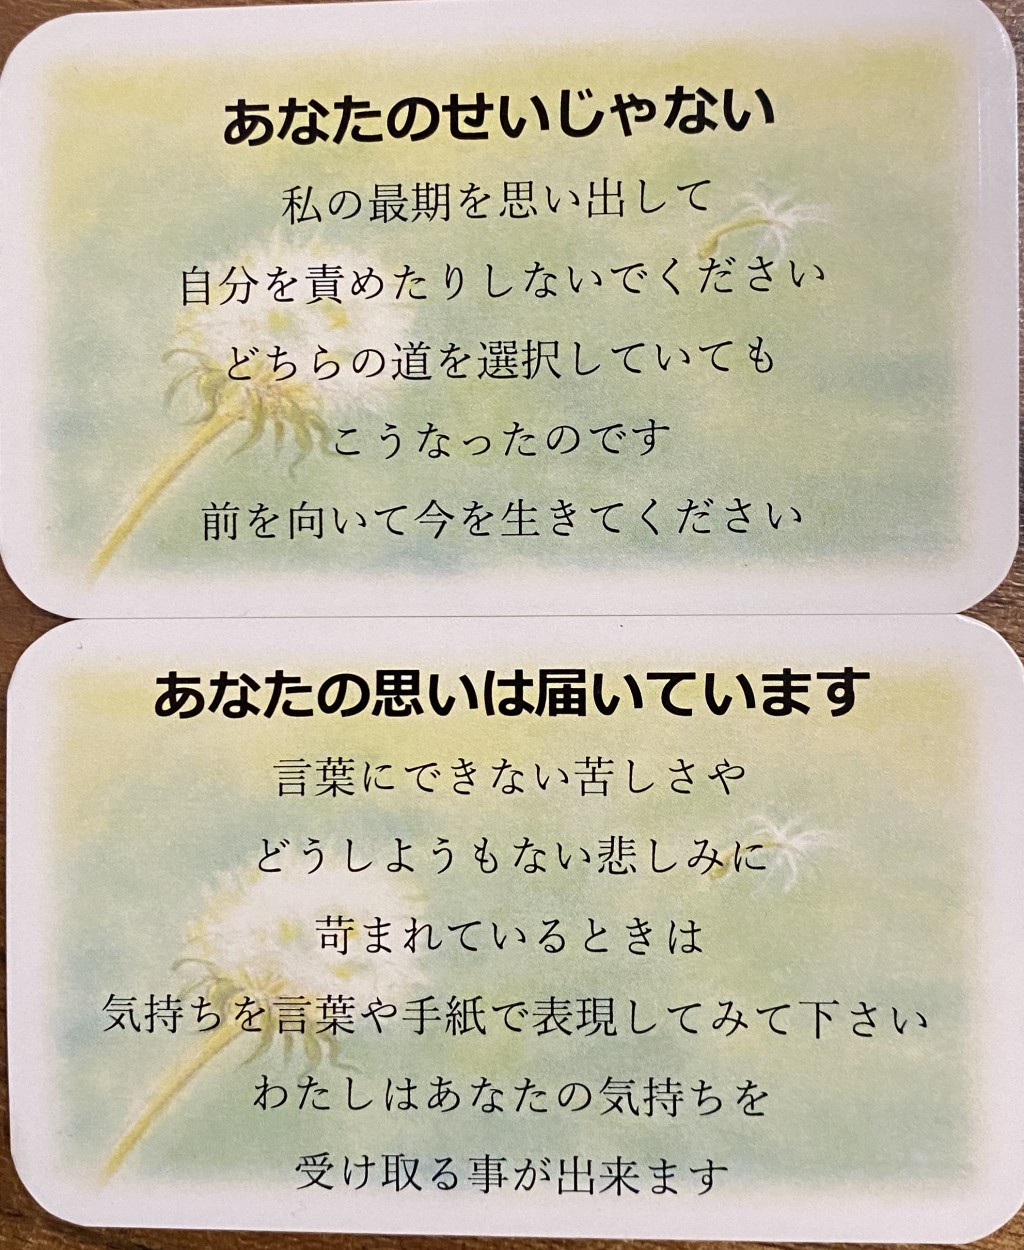 あなたのせいじゃない
私の最期を思い出して
自分を責めたりしないでください
どちらの道を選択していても
こうなったのです
前を向いて今を生きてください
あなたの思いは届いています
言葉にできない苦しさや
どうしようもない悲しみに
苛まれているときは
気持ちを言葉や手紙で表現してみて下さい
わたしはあなたの気持ちを
受け取る事が出来ます